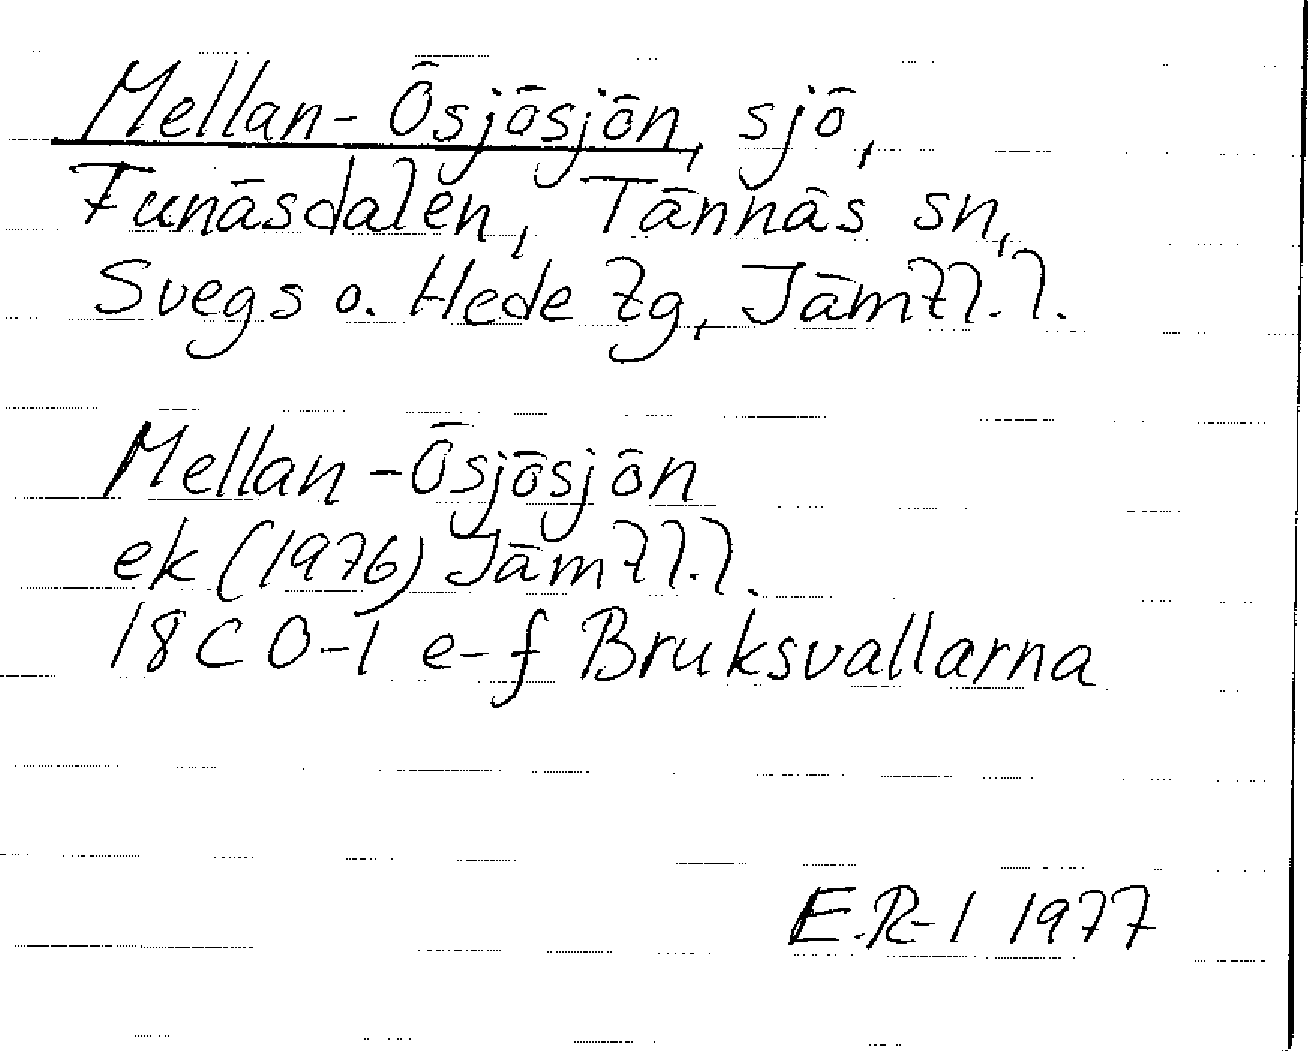 Mellan-Ösjösjön, sjö,
Funäsdalen, Tännäs sn,
Svegs o. Hede tg, Jämtl.l.
Mellan-Ösjösjön
ek (1976) Jämtl.l.
18C 0-1 e-f Bruksvallarna
E.R-l 1977